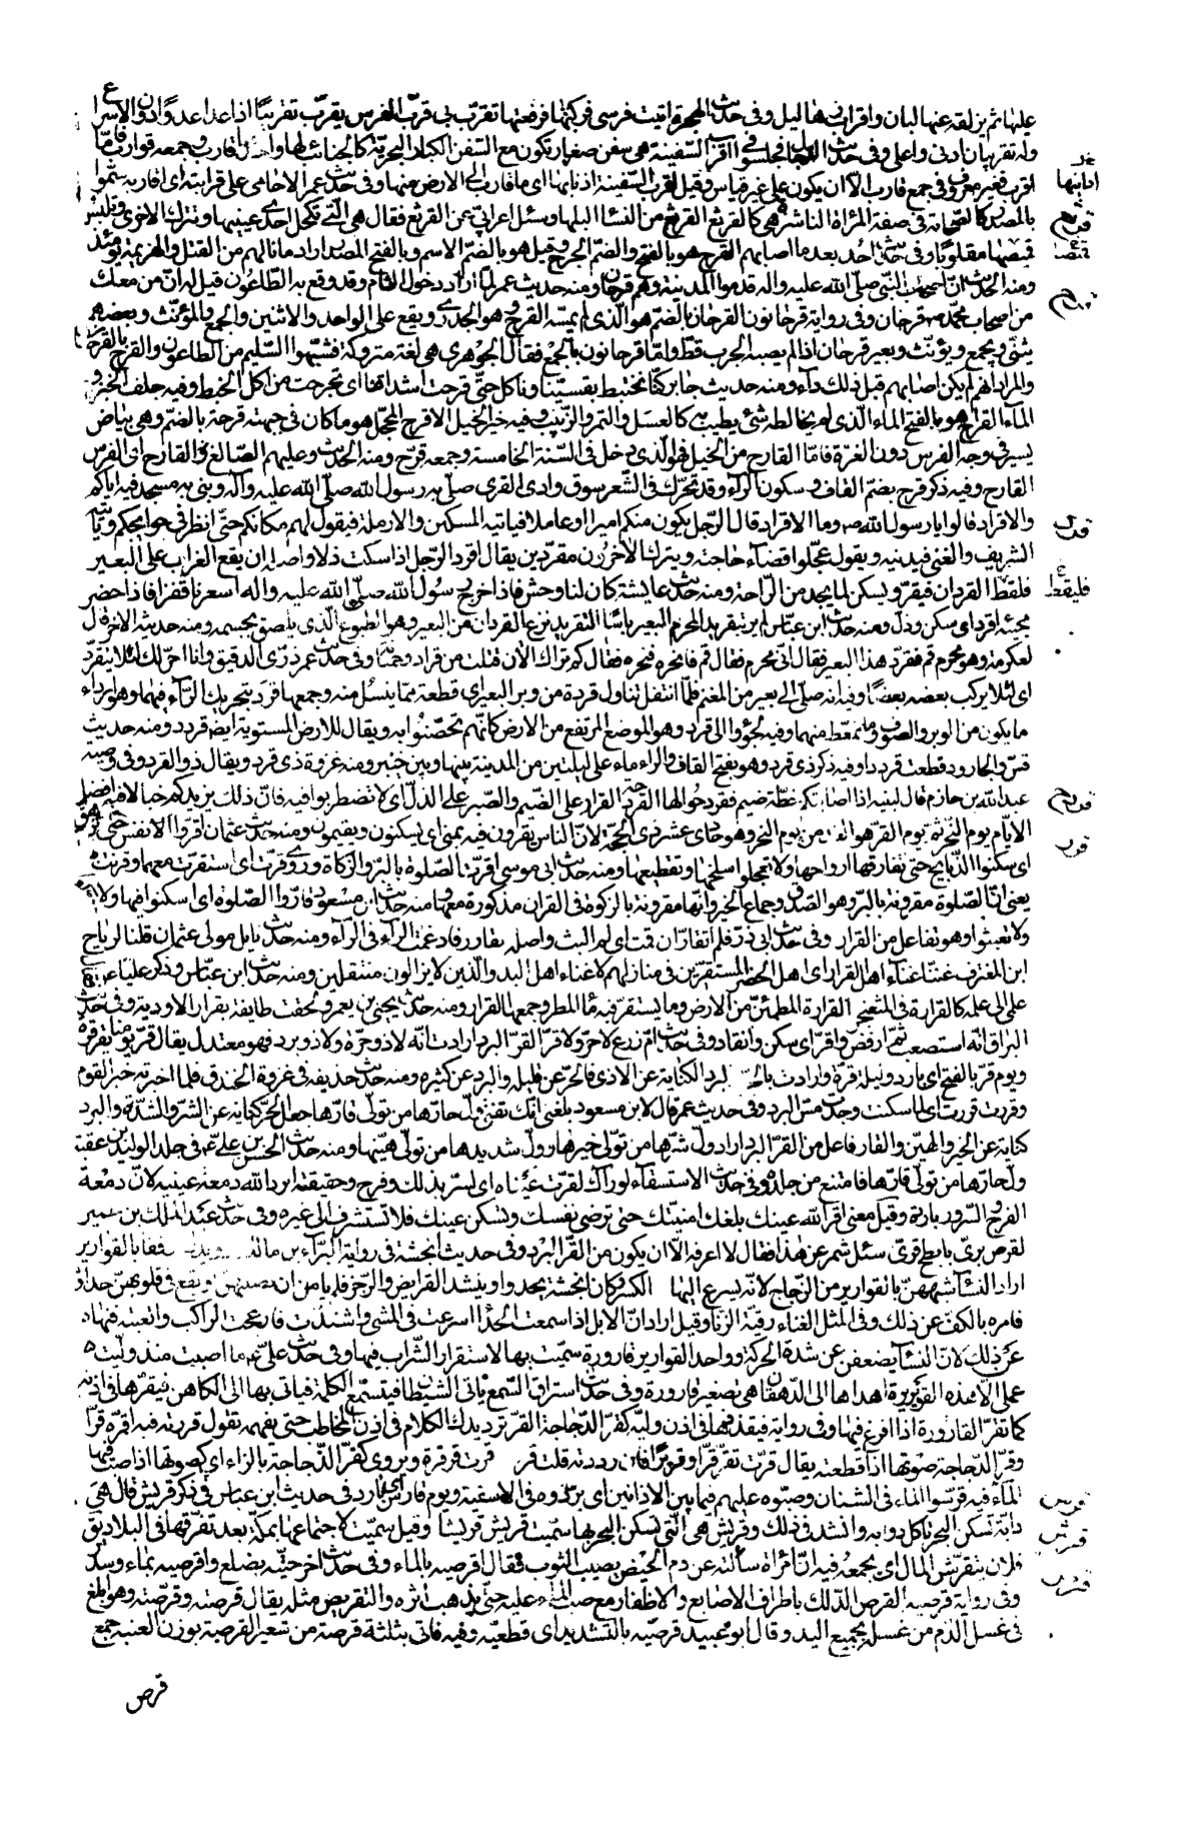 وله تقريبان ادنى واعلى وفى حديث فجلسوا فى اقرب السفينة هى سفن صغار تكون مع السفن الكبار البحريّة كالجنائب لها واحدها قارب وجمعه قوارب فامّا
اقرب فغير معروف فى جمع قارب الّا ان يكون على غير قياس وقيل اقرب السّفينة ادانيها اى ما قارب الى الارض منها وفى حديث عمر الا حامى على قرابته اى اقاربه سمّوا
بالمصدر كالصحابة فى صفة المرأة الناشز هى كالقرثع القرثع من النساء البلهاء وسئل اعرابىّ عن القرثع فقال هى الّتى تكحل احدى عينيها وتترك الاخرى وتلبس
قميصها مقلوبًا وفى حديث احد بعد ما اصابهم القرح هو بالفتح والضّم الجرح وقيل هو بالضّم الاسم وبالفتح المصدر اراد ما نالهم من القتل والهزيمة يومئذ
ومنه الحديث انّ اصحاب النّبى صلّى الله عليه واله قدموا المدينة وهم قرحان ومنه حديث عمر لمّا اراد دخول الشام وقد وقع به الطّاعون قيل له انّ من معك
من اصحاب محمّد ص قرحان وفى رواية قرحانون القرحان بالضّم هو الّذى لم يمسّه القرح وهو الجدرى ويقع على الواحد والاثنين والجمع والمؤنّث وبعضهم
يثنّى ويجمع ويؤنّث وبعير قرحان اذا لم يصبه الجرب قطّ وامّا قرحانون بالجمع فقال الجوهرى هى لغة متروكة فشبّهوا السّليم من الطاعون والقرح بالقرحان
والمراد انّهم لم يكن اصابهم قبل ذلك داء ومنه حديث جابر كنّا نختبط بقسيّنا وناكل حتّى قرحت اشداقنا اى تجرحت من اكل الخبط وفيه جلف الخبز و
الماء القراح هو بالفتح الماء الّذى لم يخالطه شئ يطيب به كالعسل والتمر والزّبيب وفيه خير الخيل الاقرح المحجّل هو ما كان فى جبهته قرحة بالضّم وهى بياض
يسير فى وجه الفرس دون الغرّة فامّا القارح من الخيل فهو الّذى دخل فى السّنة الخامسة وجمعه قرّح ومنه الحديث وعليهم الصّالغ والقارح اى الفرس
القارح وفيه ذكر قرح بضمّ القاف وسكون الرّاء وقد تحرّك فى الشّعر سوق وادى القرى صلّى به رسول الله صلّى الله عليه وآله وبنى به مسجد فيه ايّاكم
والاقراد قالوا يا رسول الله ص وما الاقراد قال الرّجل يكون منكم اميرا او عاملا فياتيه المسكين والارملة فيقول لهم مكانكم حتّى انظر فى حوايجكم ويأتيه
الشريف والغنى فيدنيه ويقول عجّلوا قضاء حاجته ويترك الآخرون مقردين يقال اقرد الرّجل اذا سكت ذلا واصله ان يقع الغراب على البعير
فلقط القردان فيقرّ ويسكن لما يجد من الرّاحة ومنه حديث عايشة كان لنا وحش فاذا خرج رسول الله صلّى الله عليه واله اسعرنا قفزا فاذا حضر
مجيئه اقرد اى سكن وذلّ ومنه حديث ابن عبّاس لم ير بتقريد المحرم البعير بأسًا التقريد نزع القردان من البعير وهو الطبوع الّذى يلصق بجسمه ومنه حديثه الاخر قال
لعكرمة وهو محرم قم فقرّد هذا البعير فقال انّى محرم فقال قم فانحره فنحره فقال كم تراك الآن قتلت من قراد وحمنانة وفى حديث عمر ذرّى الدقيق وانا احرّ لك لئلا يتقرّد
اى لئلا يركب بعضه بعضًا وفيه انه صلّى الى بعير من المغنم فلمّا انفتل تناول قردة من وبر البعير اى قطعة ممّا ينسل منه وجمعها قرد بتحريك الرّاء فيهما وهو اردأ
ما يكون من الوبر والصّوف وما تمعّط منهما وفيه لجؤوا الى قردد وهو الموضع المرتفع من الارض كانّهم تحصّنوا به ويقال للارض المستوية ايضا قردد ومنه حديث
قسّ والجارود قطعت قرددا وفيه ذكر ذى قرد وهو بفتح القاف والراء ماء على ليلتين من المدينة بينها وبين خيبر ومنه غزوة ذى قرد ويقال ذو القرد وفى وصيّة
عبد الله بن حازم قال لبنيه اذا اصابتكم خطّة ضيم فقردحوا لها القردحة القرار على الضّيم والصّبر على الذلّ اى لا تضطربوا فيه فانّ ذلك يزيدكم خبالا فيه افضل
الايّام يوم النّحر ثم يوم القرّ هو الغد من يوم النحر وهو حادى عشر ذى الحجّة لانّ الناس يقرون فيه بمنى اى يسكنون ويقيمون ومنه حديث عثمان اقرّوا الانفس حتّى تزهق
اى سكّنوا الذّبايح حتى تفارقها ارواحها ولا تعجلوا سلخها وتقطيعها ومنه حديث ابى موسى اقرّت الصّلوة بالبرّ والزكاة وروى قرّت اى استقرّت معهما وقرنت
يعنى انّ الصّلوة مقرونة بالبرّ وهو الصّدق وجماع الخير وانّها مقرونة بالزكوة فى القران مذكورة معها ومنه حديث ابن مسعود قارّوا الصّلوة اى اسكنوا فيها ولا
ولا تعبثوا وهو تفاعل من القرار وفى حديث ابى ذرّ فلم اتقارّ ان قمت اى لم البث واصله يقارر فادغمت الرّاء فى الرّاء ومنه حديث نابل مولى عثمان قلنا لرباح
ابن المغترف غنّنا غناء اهل القرار اى اهل الحضر المستقرّين فى منازلهم لا غناء اهل البدو الّذين لا يزالون منتقلين ومنه حديث ابن عبّاس وذكر عليّا ع
علمى الى علمه كالقرارة فى المثعنجر القرارة المطمئنّ من الارض وما يستقرّ فيه ماء المطر وجمعها القرار ومنه حديث يحيى بن يعمر ولحقت طايفة بقرار الاودية وفى حديث
البراق انّه استصعب ثمّ ارفضّ واقرّ اى سكن وانقاد وفى حديث امّ زرع لا حرّ ولا قرّ القرّ البرد ارادت انّه لا ذو حرّ ولا ذو برد فهو معتدل يقال قرّ يومنا يقرّ قرّة
ويوم قرّ بالفتح اى بارد وليلة قرّة وارادت بالحرّ والبرد الكناية عن الاذى فالحرّ عن قليله والبرد عن كثيره ومنه حديث حذيفة فى غزوة الخندق فلما اخبرته خبر القوم
وقررت قررت اى لما سكنت وجدت مسّ البرد وفى حديث عمر قال لابن مسعود بلغنى انّك تفتى ولّ حارّها من تولّى قارّها جعل الحرّ كناية عن الشرّ والشدّة والبرد
كناية عن الخير والهين والقار فاعل من القرّ البرد اراد ولّ شرّها من تولّى خيرها وولّ شديدها من تولّى هيّنها ومنه حديث الحسن بن على ع فى جلد الوليد بن عقبة
ولّ حارّها من تولّى قارّها فامتنع من جلده وفى حديث الاستسقاء لو رآك لقرّت عيناه اى لسرّ بذلك وفرح وحقيقته ابرد الله دمعة عينيه لانّ دمعة
الفرح والسّرور باردة وقيل معنى اقرّ الله عينك بلغك امنيّتك حتى ترضى نفسك وتسكن عينك فلا تستشرف الى غيره وفى حديث عبد الملك بن عمير
لقرص برّىّ بابطح قرىّ سئل شمر عن هذا فقال لا اعرفه الّا ان يكون من القرّ البرد وفى حديث انجشة فى رواية البرّاء بن مالك رويدك رفقا بالقوارير
اراد النّساء شبّههنّ بالقوارير من الزّجاج لانّه يسرع اليها الكسر كان انجشة يحدو وينشد القريض والرّجز فلم يامن ان يصيبهنّ او يقع فى قلوبهنّ حداؤه
فامره بالكفّ عن ذلك وفى المثل الغناء رقية الزّنا وقيل اراد انّ الابل اذا سمعت الحداء اسرعت فى المشى واشتدّت فازعجت الراكب واتعبته فنهاه
عن ذلك لانّ النّساء يضعفن عن شدّة الحركة وواحد القوارير قارورة سمّيت بها لاستقرار الشّراب فيها وفى حديث علىّ ع ما اصبت منذ وليت
عملى الّا هذه القويريرة اهداها الىّ الدّهقان هى تصغير قارورة وفى حديث استراق السّمع ياتى الشيطان فيتسمّع الكلمة فياتى بها الى الكاهن فيقرّها فى اذنه
كما تقرّ القارورة اذا افرغ فيها وفى رواية فيقذفها فى اذن وليّه كقرّ الدّجاجة القرّ ترديدك الكلام فى اذن المخاطب حتى يفهمه تقول قررته فيه اقرّه قرّا
وقرّ الدّجاجة صوتها اذا قطعته يقال قرّت تقرّ قرّا وقريرًا فان رددته قلت قرقرت قرقرة ويروى كقرّ الزّجاجة بالزاء اى كصوتها اذا صبّ فيها
الماء فيه قرّسوا الماء فى الشنان وصبّوه عليهم فيما بين الاذانين اى برّدوه فى الاسقية ويوم قارس اى بارد فى حديث ابن عباس فى ذكر قريش قال هى
دابّة تسكن البحر تاكل دوابه وانشد فى ذلك وقريش هى الّتى تسكن البحر بها سمّيت قريش قريشا وقيل سمّيت لاجتماعها بمكّة بعد تفرّقها فى البلاد يق
فلان يتقرّش المال اى يجمعه فيه انّ امرأة سألته عن دم الحيض يصيب الثوب فقال اقرصيه بالماء وفى حديث اخر حتّيه بضلع واقرصيه بماء وسدر
وفى رواية قرّصيه القرص الدّلك باطراف الاصابع والاظفار مع صبّ الماء عليه حتى يذهب اثره والتقريص مثله يقال قرصته وقرّصته وهو ابلغ
فى غسل الدّم من غسله بجميع اليد وقال ابو عبيد قرّصيه بالتّشديد اى قطّعيه وفيه فاتى بثلثة قرصة من شعير القرصة بوزن العنبة جمع
قرص
ادانيها
قرثع
قرد
فليقط
قردح
قرر
قرس
قرش